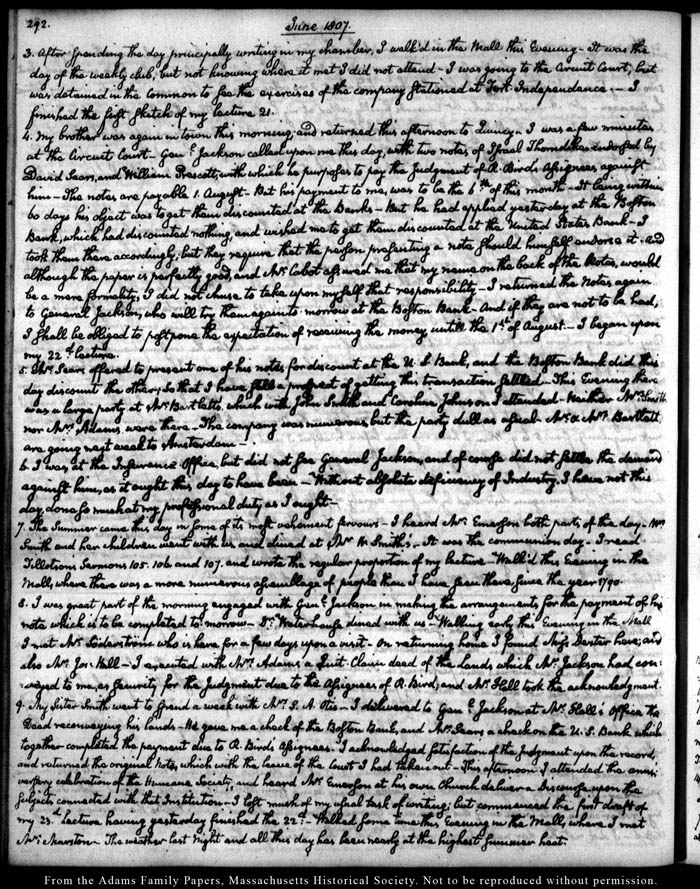 292.
June 1807.
3. After spending the day principally writing in my chamber, I walk'd in the Mall this Evening - It was the
day of the weekly club, but not knowing where it met I did not attend - I was going to the Circuit Court, but
was detained in the Common to see the exercises of the company stationed at Fort Independence. - I
finished the first sketch of my lecture 21.
4. My brother was again in town this morning, and returned this afternoon to Quincy. I was a few minutes
at the Circuit Court - Genl. Jackson called upon me this day, with two notes of Israel Thorndike endorsed by
David Sears, and William Prescott, with which he purposes to pay the judgment of A. Bird's Assignees against
him - The notes are payable 1. August - But his payment to me, was to be the 6th of this month - It being within
60 days his object was to get them discounted at the Banks - But he had applied yesterday at the Boston
Bank, which had discounted nothing, and wished me to get them discounted at the United States Bank - I
took them there accordingly; but they require that the person presenting a note should himself endorse it - And
although the paper is perfectly good, and Mr. Cabot assured me that my name on the back of the Notes, would
be a mere formality, I did not chuse to take upon myself that responsibility - I returned the Notes again
to General Jackson, who will try them again to morrow at the Boston Bank - And if they are not to be had,
I shall be obliged to postpone the expectation of receiving the money until the 1st of August. - I began upon
my 22d. lecture.
5. Mr. Sears offered to present one of his notes for discount at the U. S. Bank, and the Boston Bank did this
day discount the other; so that I have still a prospect of getting this transaction settled - This Evening there
was a large party at Mr. Bartlett's, which with John Smith and Caroline Johnson I attended - Neither Mrs. Smith
nor Mrs. Adams were there - The company was numerous, but the party dull as usual - Mr. & Mrs. Bartlett
are going next week to Amsterdam -
6. I was at the Insurance Office, but did not see General Jackson, and of course did not settle the demand
against him, as it ought this day to have been - Without absolute deficiency of Industry, I have not this
day, done so much at my professional duty as I ought -
7. The Summer came this day in some of its most vehement fervours - I heard Mr. Emerson both parts of the day - Mrs.
Smith and her children went with us, and dined at Mr. W. Smith's. - It was the communion day - I read
Tillotson's Sermons 105. 106 and 107. and wrote the regular proportion of my lecture - Walk'd this Evening in the
Mall, where there was a more numerous assemblage of people than I have seen there since the year 1790.
8. I was great part of the morning engaged with Genl. Jackson, in making the arrangements for the payment of his
note which is to be completed to-morrow - Dr. Waterhouse dined with us - Walking early this Evening in the Mall
I met Mr. Söderström who is here for a few days upon a visit - On returning home I found Miss Dexter here; and
also Mr. Jos: Hall - I executed with Mrs. Adams a Quit Claim deed of the lands which Mr. Jackson had con-
veyed to me, as Security for the Judgment due to the Assignees of A. Bird, and Mr. Hall took the acknowledgment.
9. My Sister Smith went to spend a week with Mrs. S. A. Otis - I delivered to Genl. Jackson at Mr. Hall's Office the
Deed reconveying his lands - He gave me a check of the Boston Bank, and Mr. Sears a check on the U. S. Bank which
together completed the payment due to A. Bird's Assignees. I acknowledged satisfaction of the judgment upon the record,
and returned the original Note, which with the leave of the Court I had taken out - This afternoon I attended the anni-
versary celebration of the Humane Society, and heard Mr. Emerson at his own Church deliver a Discourse upon the
subjects connected with that Institution - I lost much of my usual task of writing; but commenced the first draft of
my 23d. lecture having yesterday finished the 22d. - Walked some time this Evening in the Mall, where I met
Mr. Marston - The weather last night and all this day has been nearly at the highest summer heat.
From the Adams Family Papers, Massachusetts Historical Society. Not to be reproduced without permission.